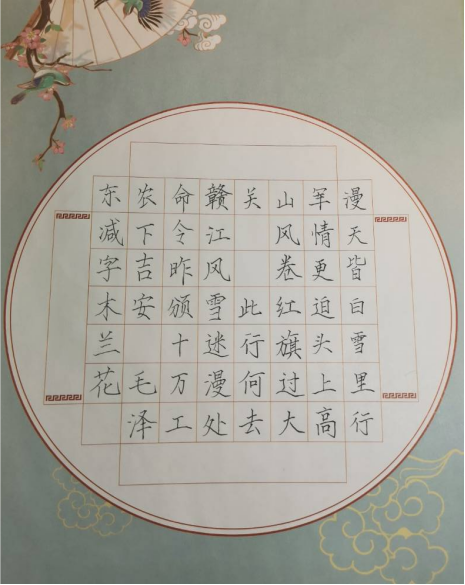 漫天皆白雪里行
军情更迫头上高
山风卷红旗过大
关 此行何去
赣江风雪迷漫处
命令昨颁十万工
农下吉安 毛泽
东减字木兰花